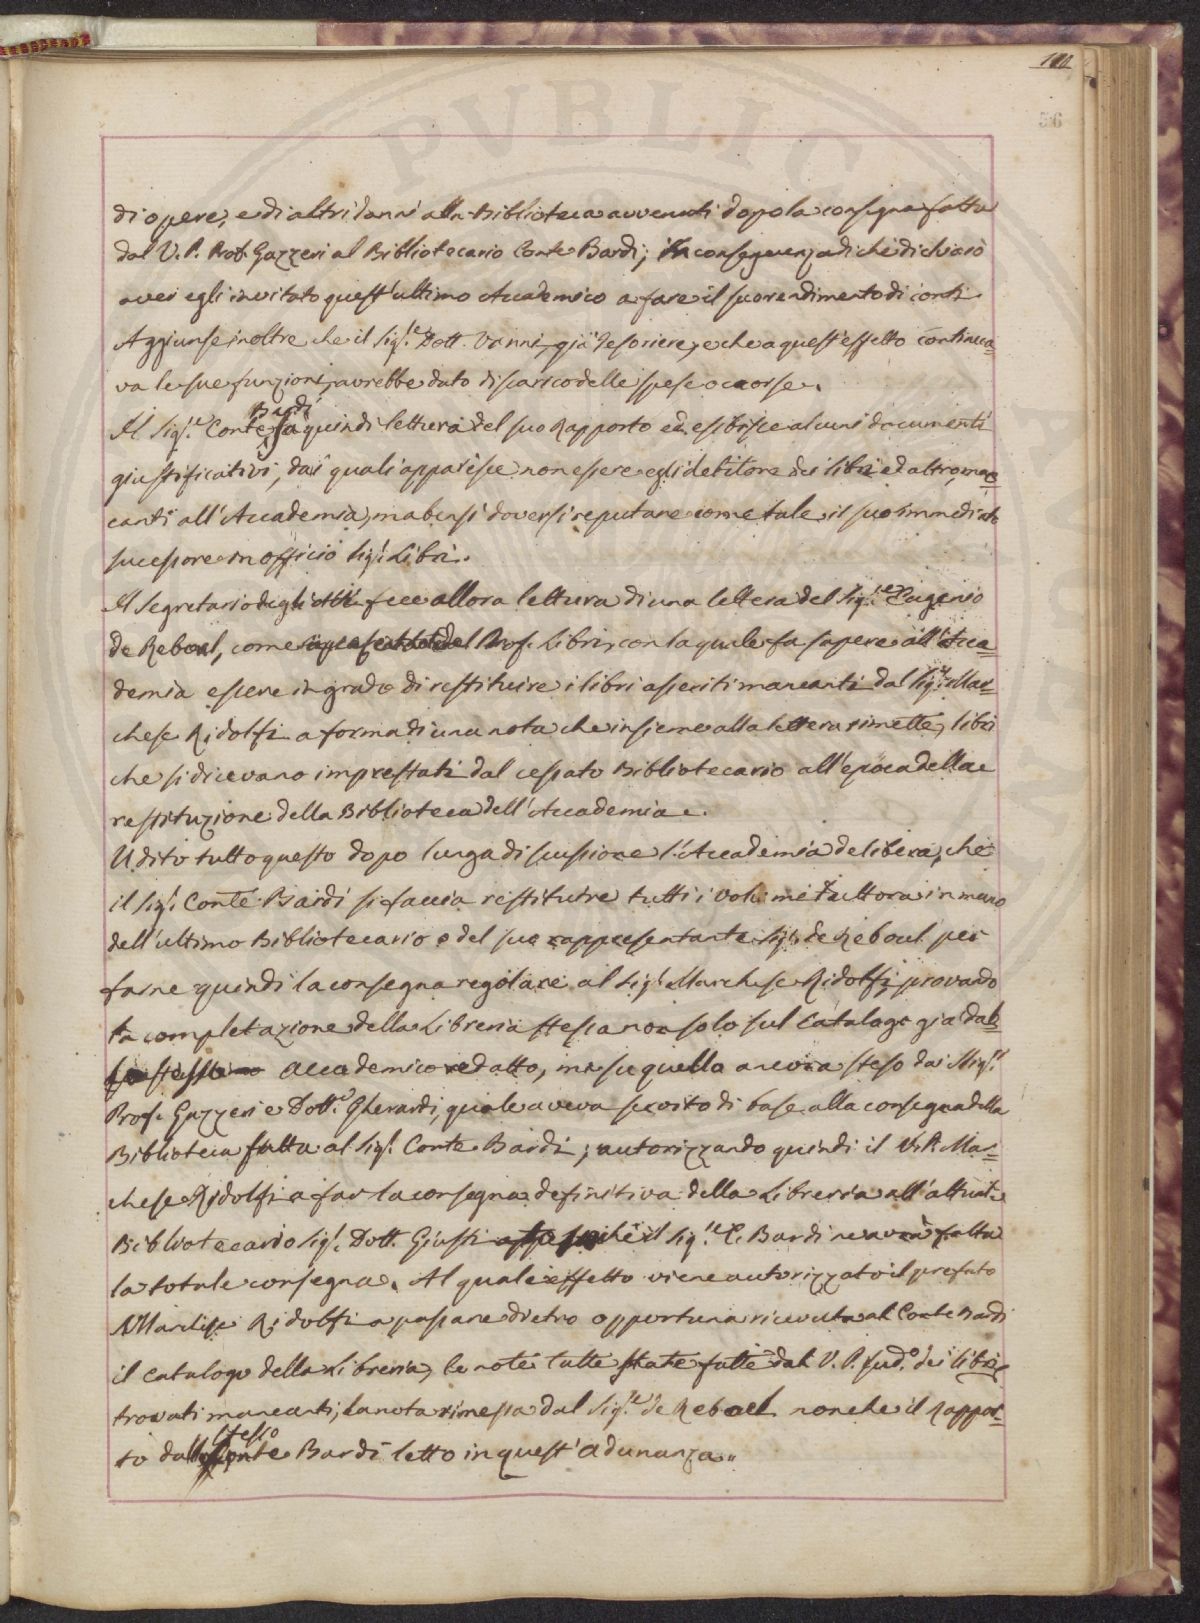 110
56
di opere, e di altri danni alla Biblioteca avvenuti dopo la consegna fatta
dal V. P. Prof. Gazzeri al Bibliotecario Conte Bardi; in conseguenza di che dichiarò
aver egli invitato quest'ultimo Accademico a fare il suo rendimento di conti.
Aggiunse inoltre che il Sig.e Dott. Vanni, già Tesoriere, e che a quest'effetto continua-
va le sue funzioni, avrebbe dato discarico delle spese occorse.
Il Sig.e Conte Bardi dà quindi lettura del suo Rapporto ed esibisce alcuni documenti
giustificativi, dai quali apparisce non essere egli debitore dei libri ed altro, man-
canti all'Accademia, ma bensì doversi reputare come tale il suo immediato
successore in officio Sig. Libri.
Il Segretario degli Atti fece allora lettura di una lettera del Sig.e Eugenio
de Reboul, come del Prof. Libri, con la quale fa sapere all'Acca-
demia essere in grado di restituire i libri asseriti mancanti dal Sig.e Mar-
chese Ridolfi a forma di una nota che insieme alla lettera rimette, libri
che si dicevano imprestati dal cessato Bibliotecario all'epoca della
restituzione della Biblioteca dell'Accademia.
Udito tutto questo dopo lunga discussione l'Accademia delibera, che
il Sig. Conte Bardi si faccia restituire tutti i volumi tuttora in mano
dell'ultimo Bibliotecario o del suo rappresentante Sig. de Reboul per
farne quindi la consegna regolare al Sig. Marchese Ridolfi, provando
la completazione della Libreria stessa non solo sul Catalogo già dal-
Accademico redatto, ma su quello ancora steso dai Sig.i
Prof. Gazzeri e Dott. Gherardi, quale aveva servito di base alla consegna della
Biblioteca fatta al Sig. Conte Bardi; autorizzando quindi il V. P. Mar-
chese Ridolfi a far la consegna definitiva della Libreria all'attuale
Bibliotecario Sig. Dott. Giusti che il Sig.e C. Bardi ne avrà fatta
la totale consegna. Al quale effetto viene autorizzato il prefato
Marchese Ridolfi a passare dietro opportuna ricevuta al Conte Bardi
il catalogo della Libreria, le note tutte state fatte dal V. P. sud.o dei libri
trovati mancanti, la nota rimessa dal Sig.e de Reboul nonche il Rappor-
to dallo stesso Conte Bardi letto in quest'adunanza.
PVBLIC